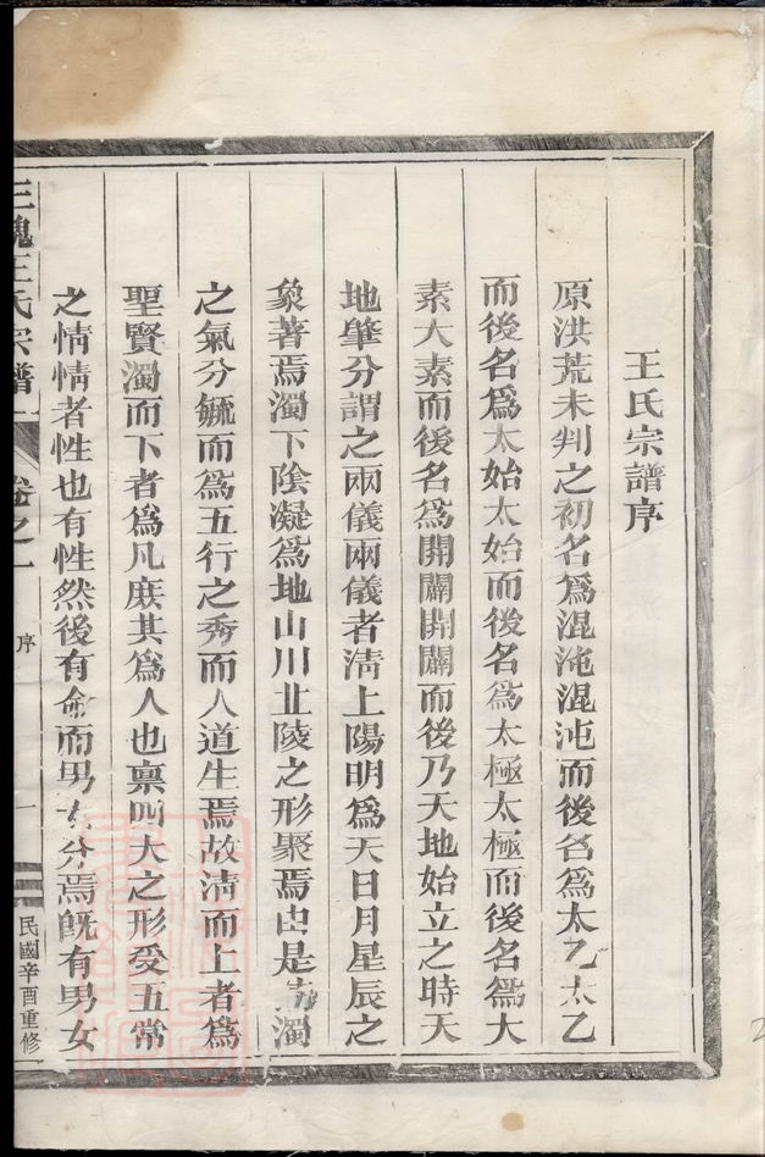 王氏宗譜序
原洪荒未判之初名爲混沌混沌而後名爲太乙太乙
而後名爲太始太始而後名爲太極太極而後名爲大
素大素而後名爲開闢開闢而後乃天地始立之時天
地肇分謂之兩儀兩儀者淸上陽明爲天日月星辰之
象著焉濁下陰凝爲地山川丘陵之形聚焉由是淸濁
之氣分毓而爲五行之秀而人道生焉故淸而上者爲
聖賢濁而下者爲凡庶其爲人也禀四大之形受五常
之情情者性也有性然後有命而男女分焉旣有男女
三槐王氏宗譜 卷之一 序 一 民國辛酉重修